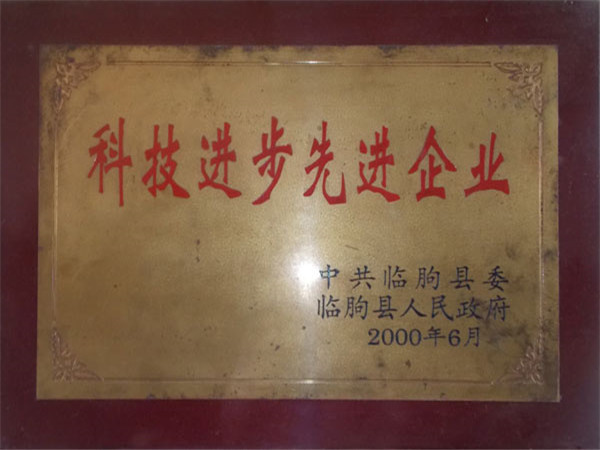 科技进步先进企业
中共临朐县委
临朐县人民政府
2000年6月